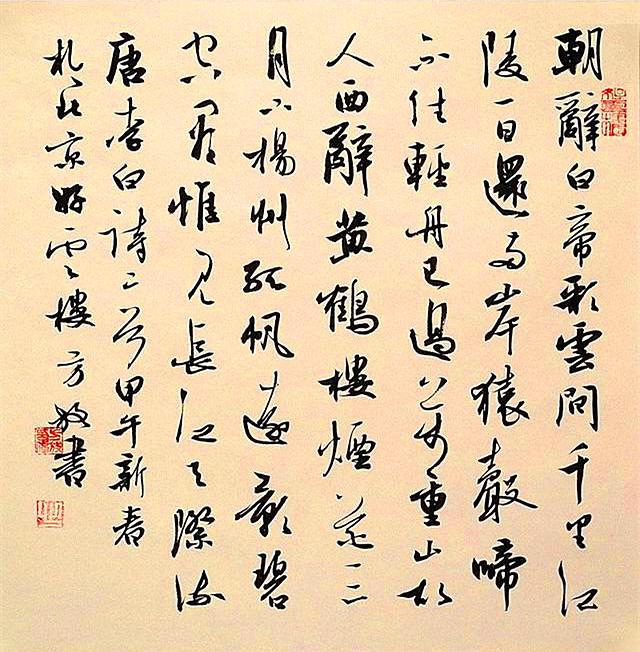 朝辭白帝彩雲間千里江
陵一日還兩岸猿聲啼
不住輕舟已過萬重山故
人西辭黃鶴樓煙花三
月下楊州孤帆遠影碧
空盡惟見長江天際流
唐李白詩二首甲午新春
於北京雲樓方書